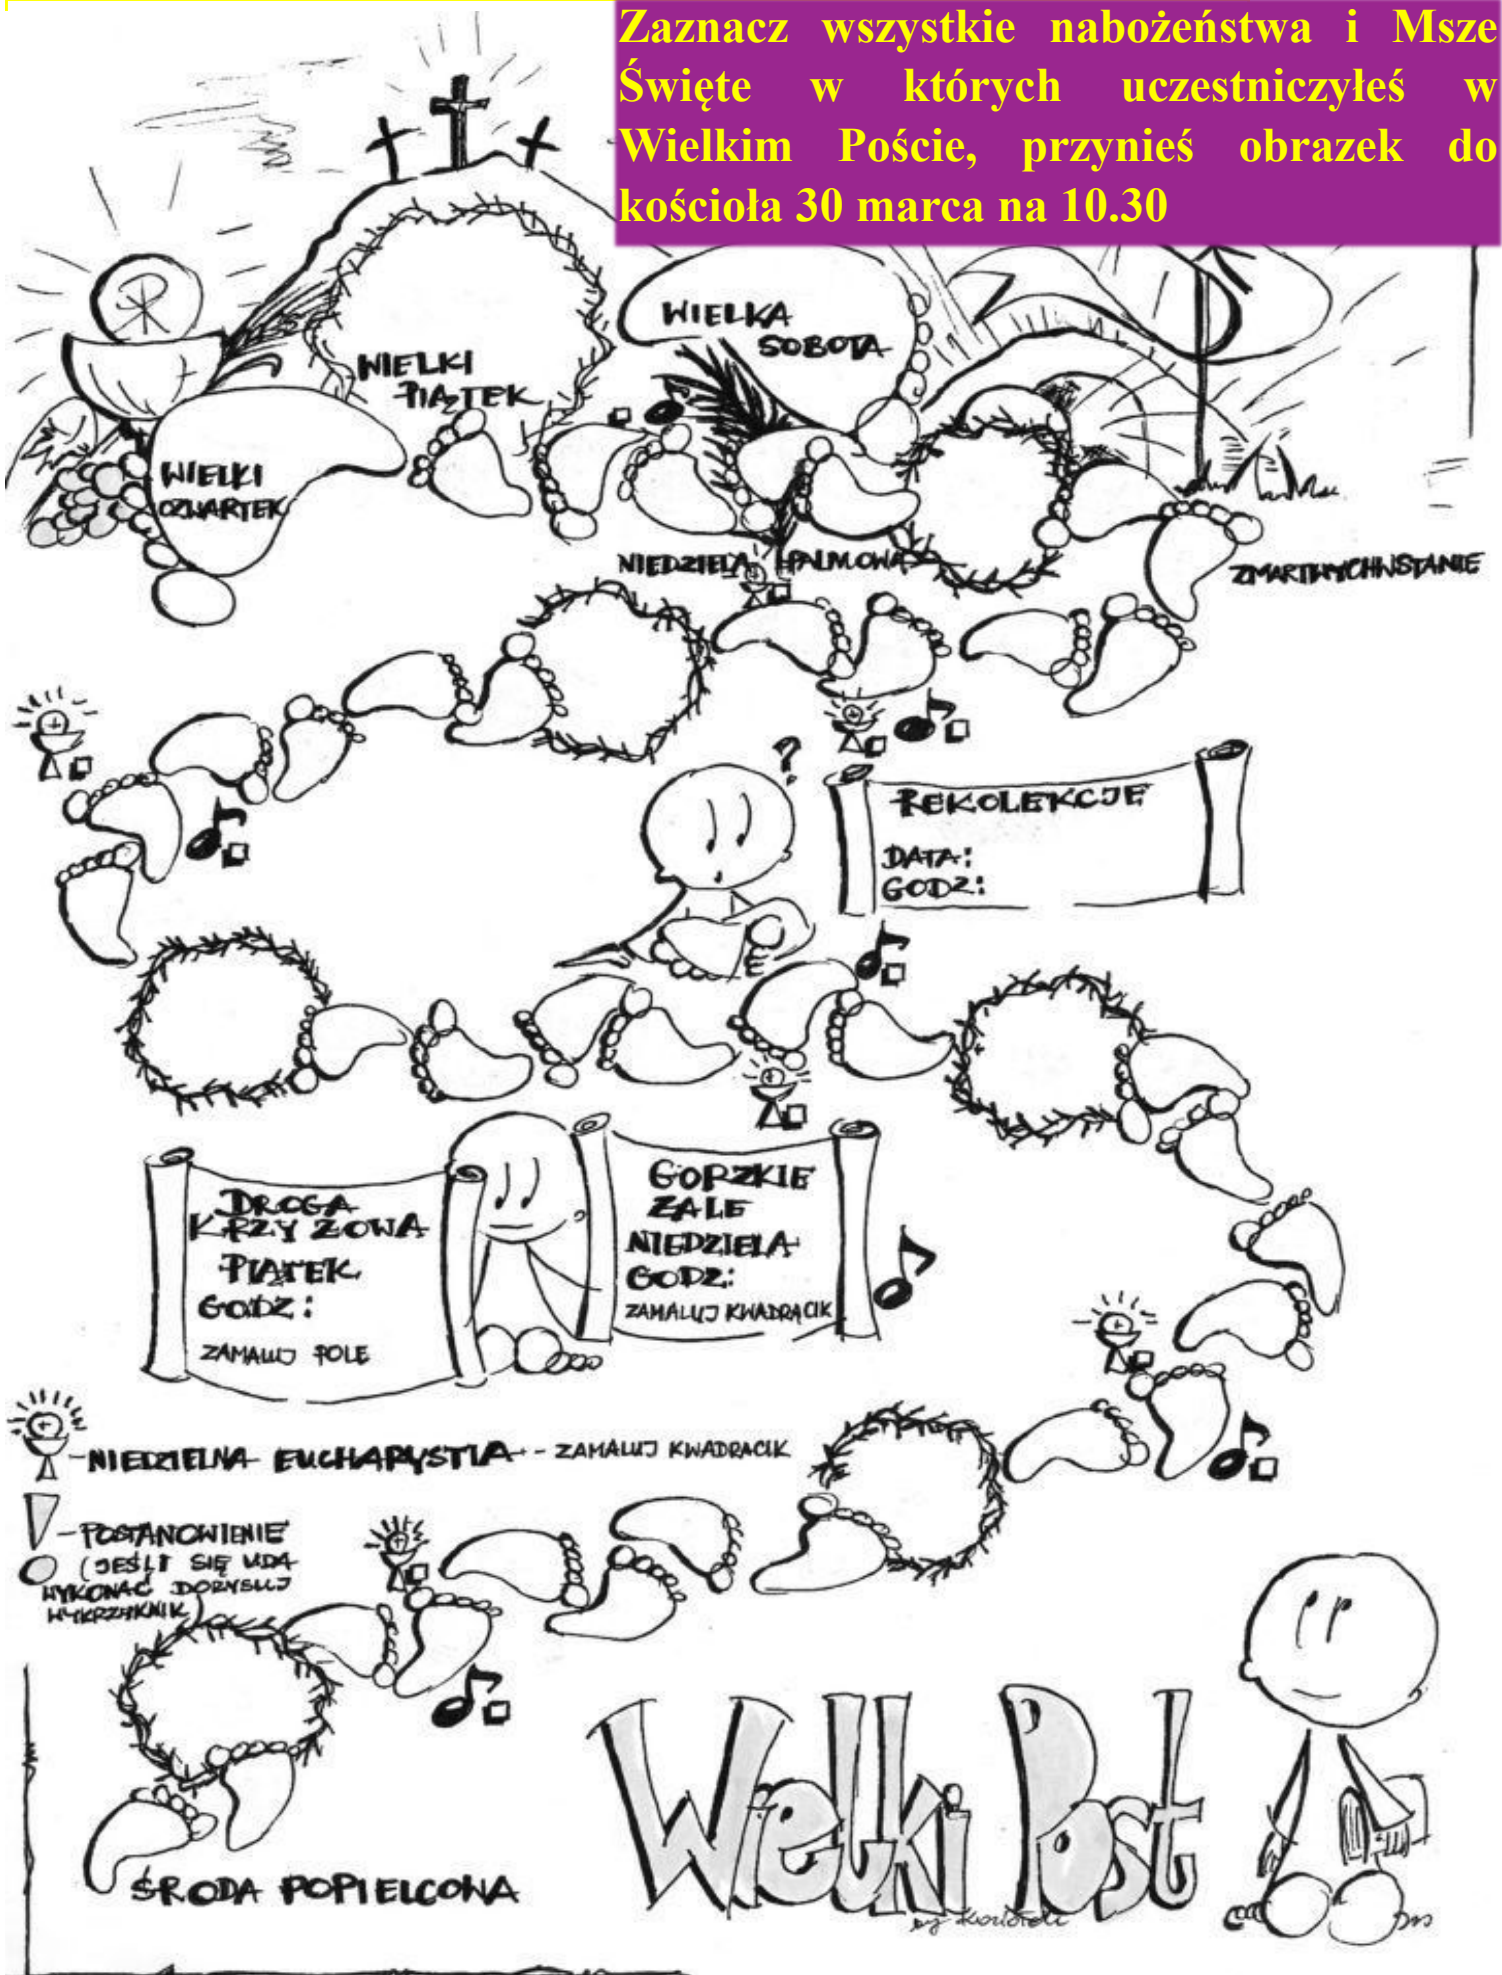 Zaznacz wszystkie nabożeństwa i Msze
Święte w których uczestniczyłeś w
Wielkim Poście, przynieś obrazek do
kościoła 30 marca na 10.30
WIELKA
SOBOTA
WIELKI
PIĄTEK
WIELKI
CZWARTEK
NIEDZIELA PALMOWA
ZMARTWYCHWSTANIE
?
REKOLEKCJE
DATA:
GODZ:
DROGA
KRZYŻOWA
PIĄTEK
GODZ:
ZAMALUJ POLE
GORZKIE
ŻALE
NIEDZIELA
GODZ:
ZAMALUJ KWADRACIK
-NIEDZIELNA EUCHARYSTIA - ZAMALUJ KWADRACIK
-POSTANOWIENIE
(JEŚLI SIĘ UDA
WYKONAĆ DORYSUJ
WYKRZYKNIK)
Wielki Post
ŚRODA POPIELCOWA